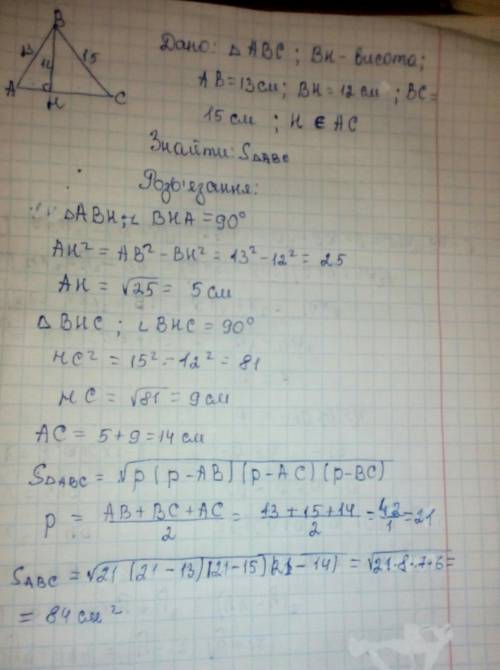 B
13
12
15
A
H
C
Дано: △ABC; BH - висота;
AB=13см; BH=12см; BC=
15см; H ∈ AC
Знайти: S△ABC
Розв'язання:
△ABH; ∠ BHA = 90°
AH² = AB² - BH² = 13² - 12² = 25
AH = √25 = 5 см
△ BHC; ∠ BHC = 90°
HC² = 15² - 12² = 81
HC = √81 = 9 см
AC = 5+9=14 см
S△ABC = √p(p-AB)(p-AC)(p-BC)
p = AB+BC+AC/2 = 13+15+14/2 = 42/1 = 21
SABC = √21(21-13)(21-15)(21-14) = √21·8·7·6 =
= 84 см²